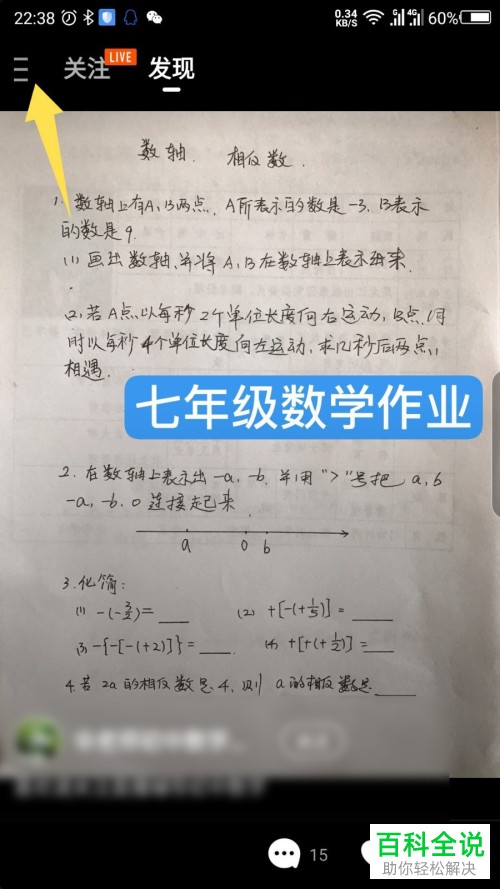 22:38
0.34 KB/S
4G
60%
关注
LIVE
发现
数轴. 相反数.
1. 数轴上有A、B两点, A所表示的数是-3, B表示
的数是9.
(1) 画出数轴,并将A、B在数轴上表示出来.
(2) 若A点以每秒2个单位长度向右运动, B点同
时以每秒4个单位长度向左运动, 求几秒后两点
相遇.
七年级数学作业
2. 在数轴上表示出-a, -b, 并用">"号把 a, b
-a, -b, 0 连接起来
a 0 b
3. 化简:
(1) -(-3/2)= ___ (2) +[-(+1/5)] = ___
(3) -{-[-(+2)]}= ___. (4) +[+(+1/2)]= ___
4. 若2a的相反数是4, 则 a的相反数是___
15
百科全说
助你轻松解决